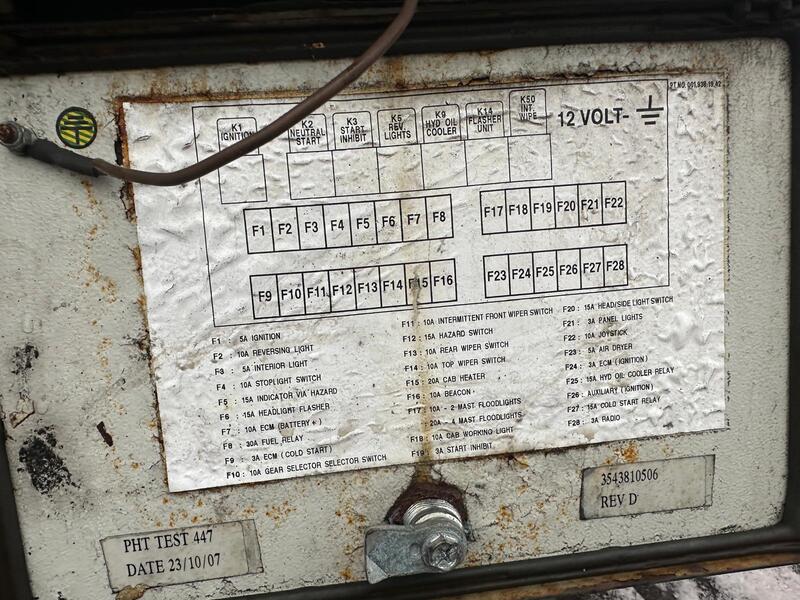 PT NO. 001.938.19.42
K1 IGNITION
K2 NEUTRAL START
K3 START INHIBIT
K5 REV. LIGHTS
K9 HYD OIL COOLER
K14 FLASHER UNIT
K50 INT. WIPE
12 VOLT-
F1 F2 F3 F4 F5 F6 F7 F8
F17 F18 F19 F20 F21 F22
F9 F10 F11 F12 F13 F14 F15 F16
F23 F24 F25 F26 F27 F28
F1 : 5A IGNITION
F2 : 10A REVERSING LIGHT
F3 : 5A INTERIOR LIGHT
F4 : 10A STOPLIGHT SWITCH
F5 : 15A INDICATOR VIA HAZARD
F6 : 15A HEADLIGHT FLASHER
F7 : 10A ECM (BATTERY +)
F8 : 30A FUEL RELAY
F9 : 3A ECM (COLD START)
F10 : 10A GEAR SELECTOR SELECTOR SWITCH
F11 : 10A INTERMITTENT FRONT WIPER SWITCH
F12 : 15A HAZARD SWITCH
F13 : 10A REAR WIPER SWITCH
F14 : 10A TOP WIPER SWITCH
F15 : 20A CAB HEATER
F16 : 10A BEACON
F17 : 10A - 2 MAST FLOODLIGHTS
20A - 4 MAST FLOODLIGHTS
F18 : 10A CAB WORKING LIGHT
F19 : 3A START INHIBIT
F20 : 15A HEAD/SIDE LIGHT SWITCH
F21 : 3A PANEL LIGHTS
F22 : 10A JOYSTICK
F23 : 5A AIR DRYER
F24 : 3A ECM (IGNITION)
F25 : 15A HYD OIL COOLER RELAY
F26 : AUXILIARY (IGNITION)
F27 : 15A COLD START RELAY
F28 : 3A RADIO
3543810506
REV D
PHT TEST 447
DATE 23/10/07